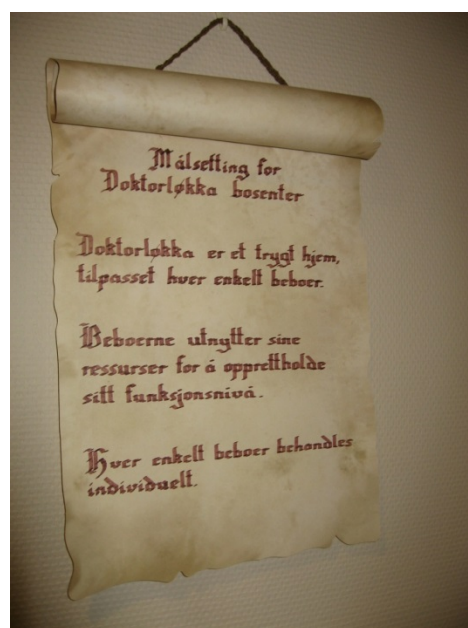 Målsetting for
Doktorløkka bosenter
Doktorløkka er et trygt hjem,
tilpasset hver enkelt beboer.
Beboerne utnytter sine
ressurser for å opprettholde
sitt funksjonsnivå.
Hver enkelt beboer behandles
individuelt.